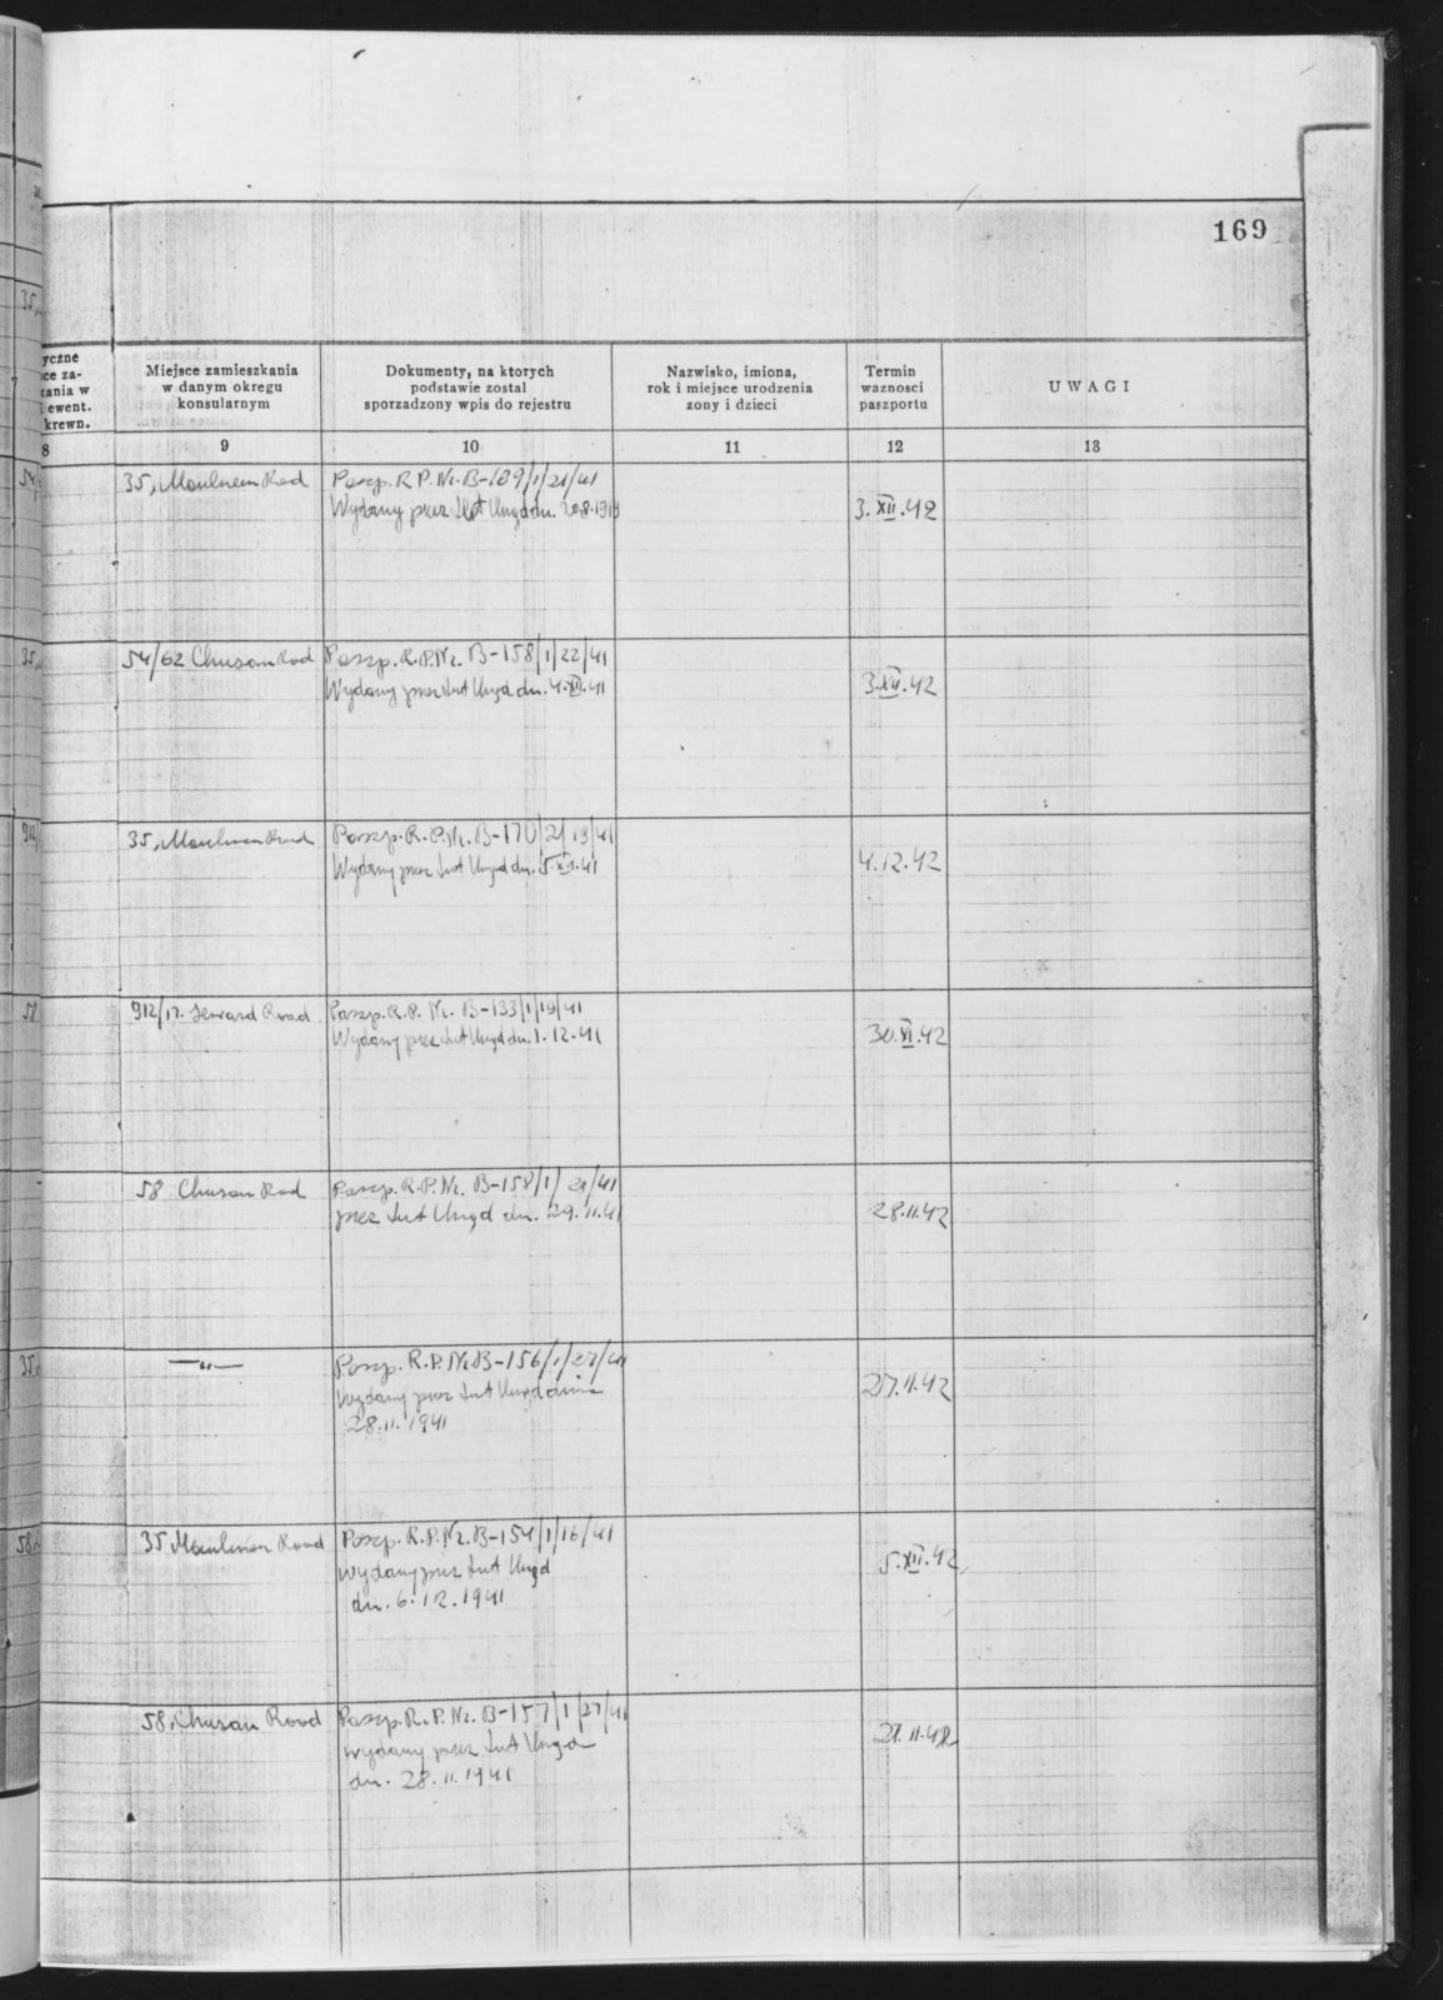 169
yczne
ce za-
kania w
i ewent.
krewn.
Miejsce zamieszkania
w danym okregu
konsularnym
Dokumenty, na ktorych
podstawie zostal
sporzadzony wpis do rejestru
Nazwisko, imiona,
rok i miejsce urodzenia
zony i dzieci
Termin
waznosci
paszportu
UWAGI
8 9 10 11 12 13
35, Moulmein Road Paszp. R.P. Nr. B-189/1/21/41
Wydany przez tut Urząd dn. 3.XII.42
54/62 Chusan Road Paszp. R.P. Nr. B-158/1/22/41
Wydany przez tut Urząd dn. 4.XII.41 3.XII.42
35, Moulmein Road Paszp. R.P. Nr. B-170/2/13/41
Wydany przez tut Urząd dn. 5.XII.41 4.12.42
912/17. Seward Road Paszp. R.P. Nr. B-133/1/19/41
Wydany przez tut Urząd dn. 1.12.41 30.XI.42
58 Chusan Road Paszp. R.P. Nr. B-158/1/21/41
przez tut Urząd dn. 29.11.41 28.11.42
—"— Paszp. R.P. Nr. B-156/1/27/41
Wydany przez tut Urząd dnia 27.11.42
28.11.1941
35 Moulmein Road Paszp. R.P. Nr. B-154/1/16/41
wydany przez tut Urząd 5.XII.42
dn. 6.12.1941
58, Chusan Road Paszp. R.P. Nr. B-157/1/27/41
wydany przez tut Urząd 27.11.42
dn. 28.11.1941